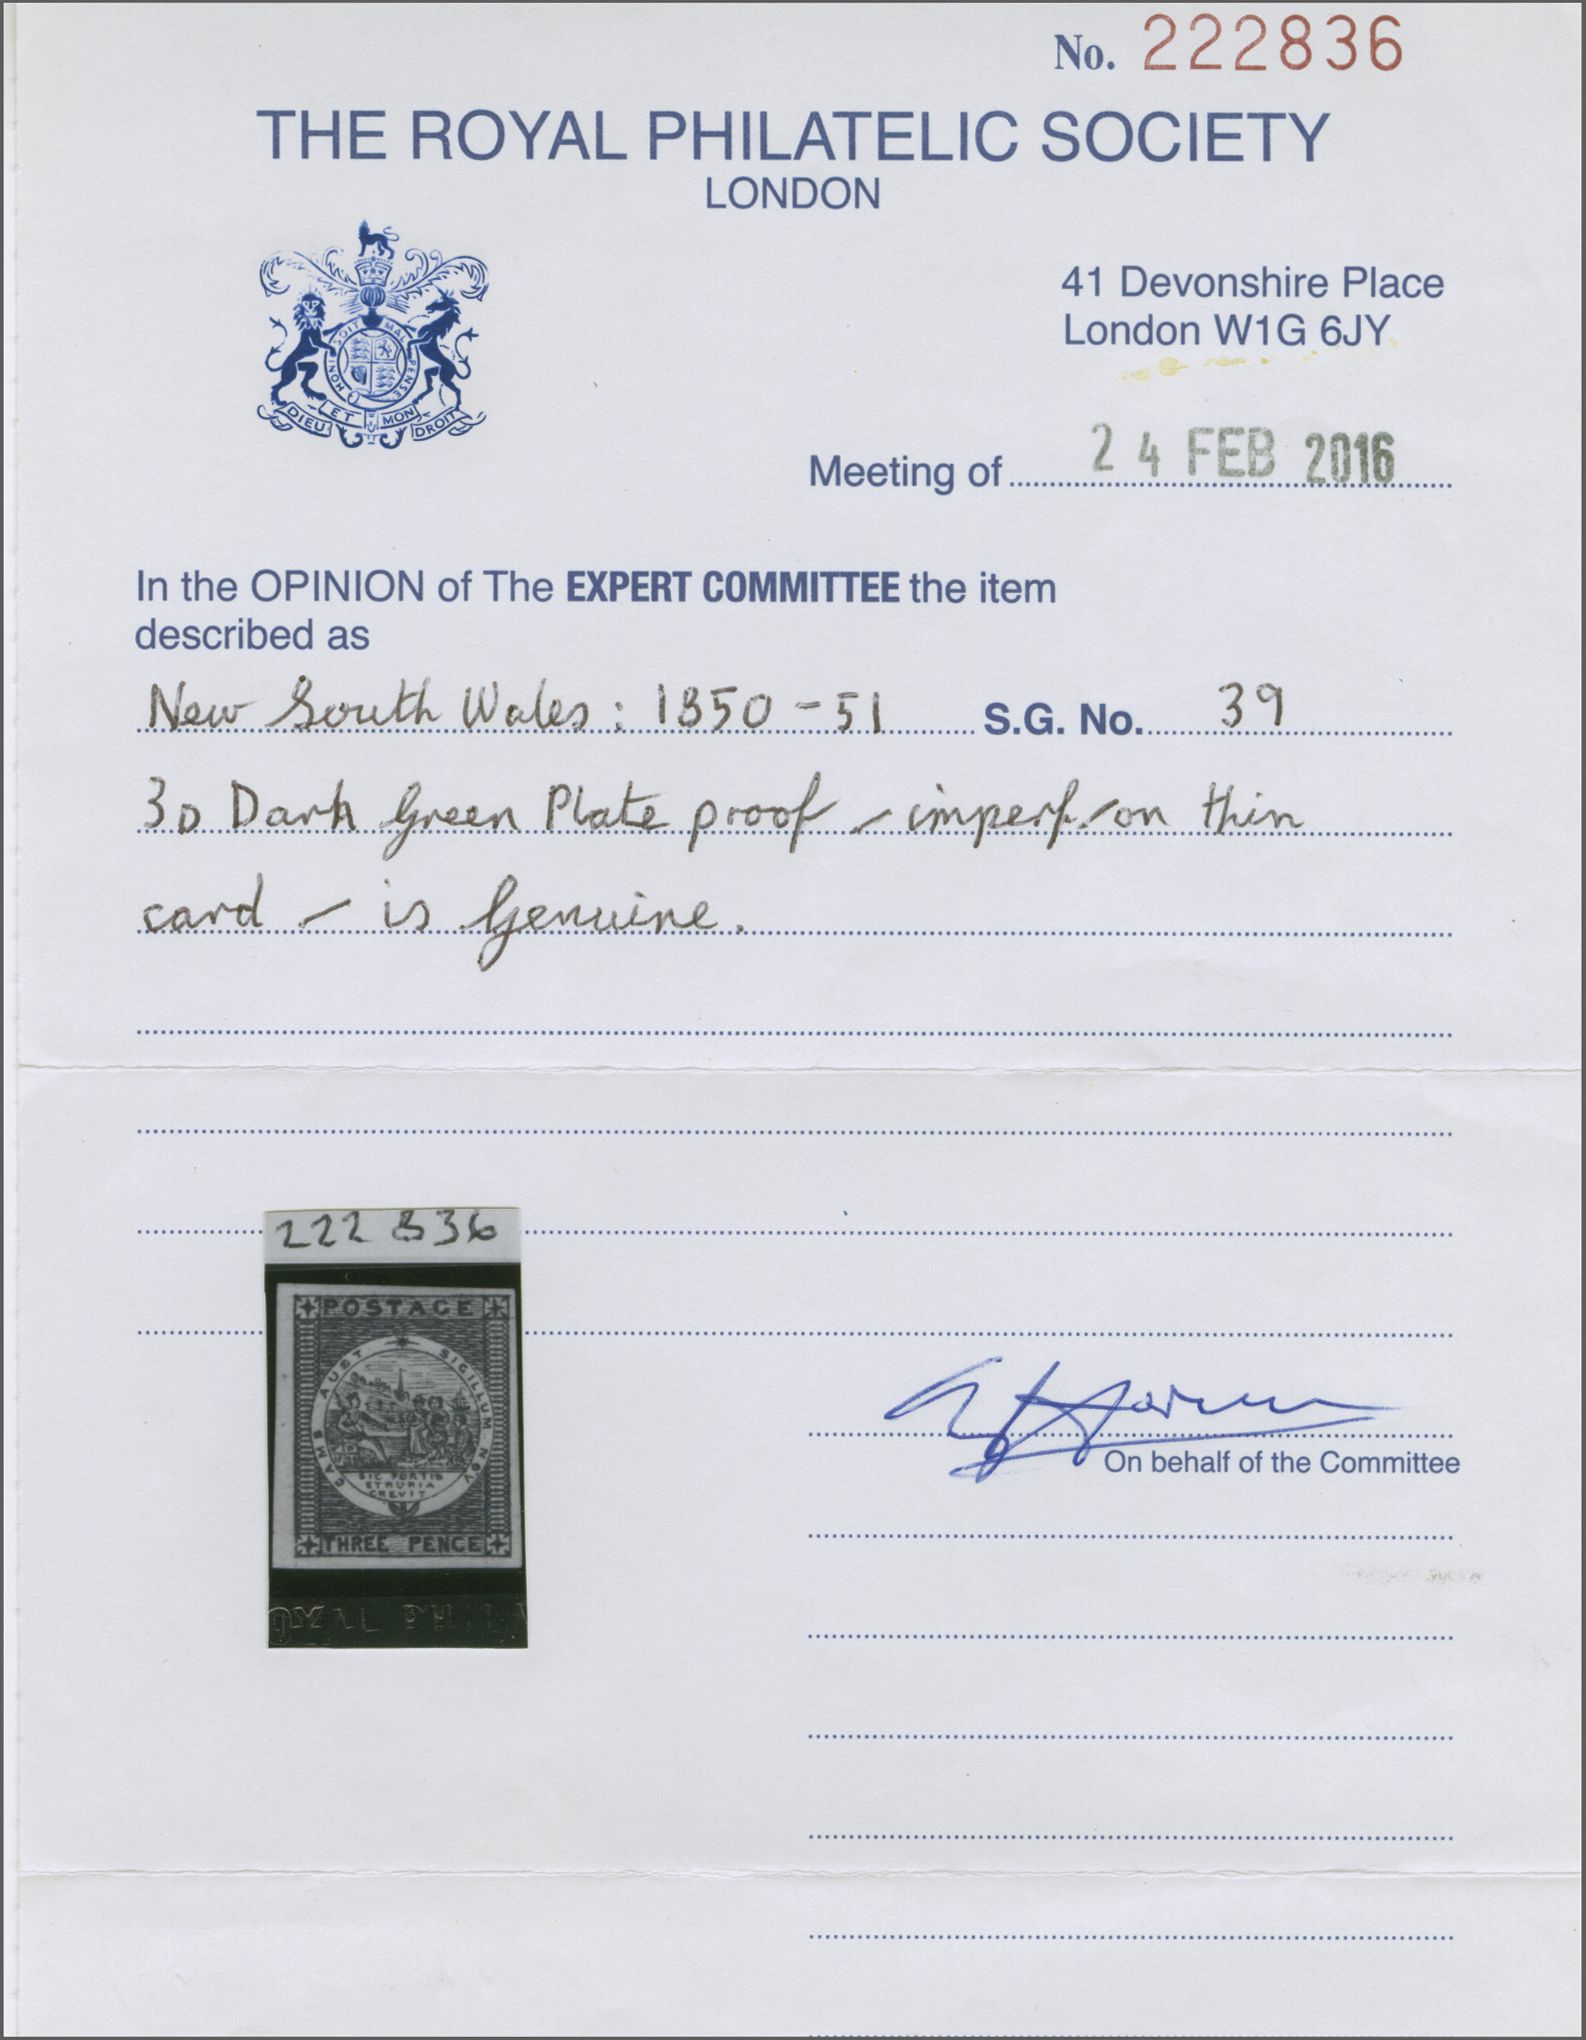 No. 222836
THE ROYAL PHILATELIC SOCIETY
LONDON
41 Devonshire Place
London W1G 6JY
SOIT MAL
PENSE
HONI
DIEU ET MON DROIT
Meeting of 24 FEB 2016
In the OPINION of The EXPERT COMMITTEE the item
described as
New South Wales: 1850-51 S.G. No. 39
3D Dark Green Plate proof - imperf. - on thin
card - is Genuine.
222 836
POSTAGE
CAMB AUST SIGILLUM NOV
SIC FORTIS
ETRURIA
CREVIT
THREE PENCE
On behalf of the Committee